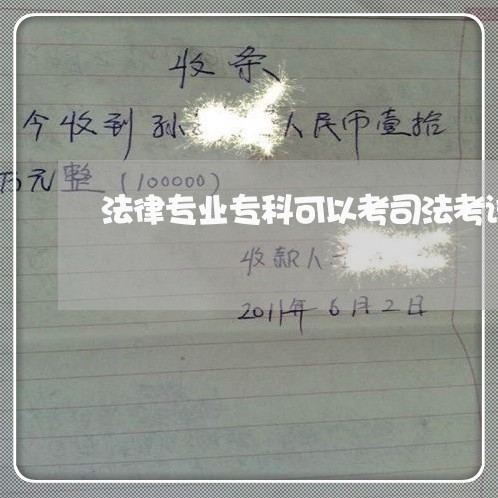 收条
今收到孙 人民币壹拾
万元整（100000）
法律专业专科可以考司法考试
收款人
2011年6月2日